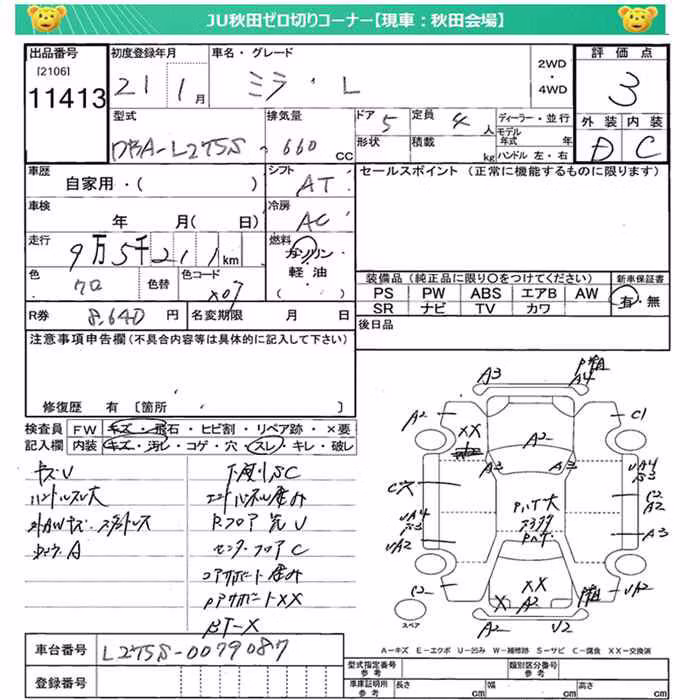 JU秋田ゼロ切りコーナー【現車：秋田会場】
出品番号
[2106]
11413
初度登録年月
21 1月
車名・グレード
ミラ・L
2WD
・
4WD
評価点
3
外装 内装
D C
型式
DBA-L275S
排気量
660 CC
ドア 5
定員 4 人
形状
積載 kg
ディーラー・並行
モデル年式 年
ハンドル 左・右
車歴
自家用・( )
シフト
AT
セールスポイント (正常に機能するものに限ります)
車検
年 月( 日)
冷房
AC
走行
9万5千211km
燃料
ガソリン・
軽油・
( )
色
クロ
色替
色コード
X07
装備品 (純正品に限り〇をつけてください)
新車保証書
PS PW ABS エアB AW
SR ナビ TV カワ
有・無
R券 8,640 円
名変期限 月 日
後日品
注意事項申告欄(不具合内容等は具体的に記入して下さい)
修復歴 有 [箇所 ]
検査員記入欄
FW キズ・飛石・ヒビ割・リペア跡・×要
内装 キズ・汚レ・コゲ・穴・スレ・キレ・破レ
キズU
ハンドルスレ大
下廻りSC
Rフロア先U
センターフロアC
コアサポート
Pアサポート XX
A3
A4
A2
C1
XX
A2
A3 A3
UA4
C2
A2
UA4
UA2
A3
C2
XX
X A2
UA2
A2 U2
スペア
A-キズ E-エクボ U-凹み W-補修跡 S-サビ C-腐食 XX-交換済
車台番号
L275S-0079087
登録番号
型式指定番号
参考
類別区分番号
参考
車庫証明用
参考
長さ cm
幅 cm
高さ cm